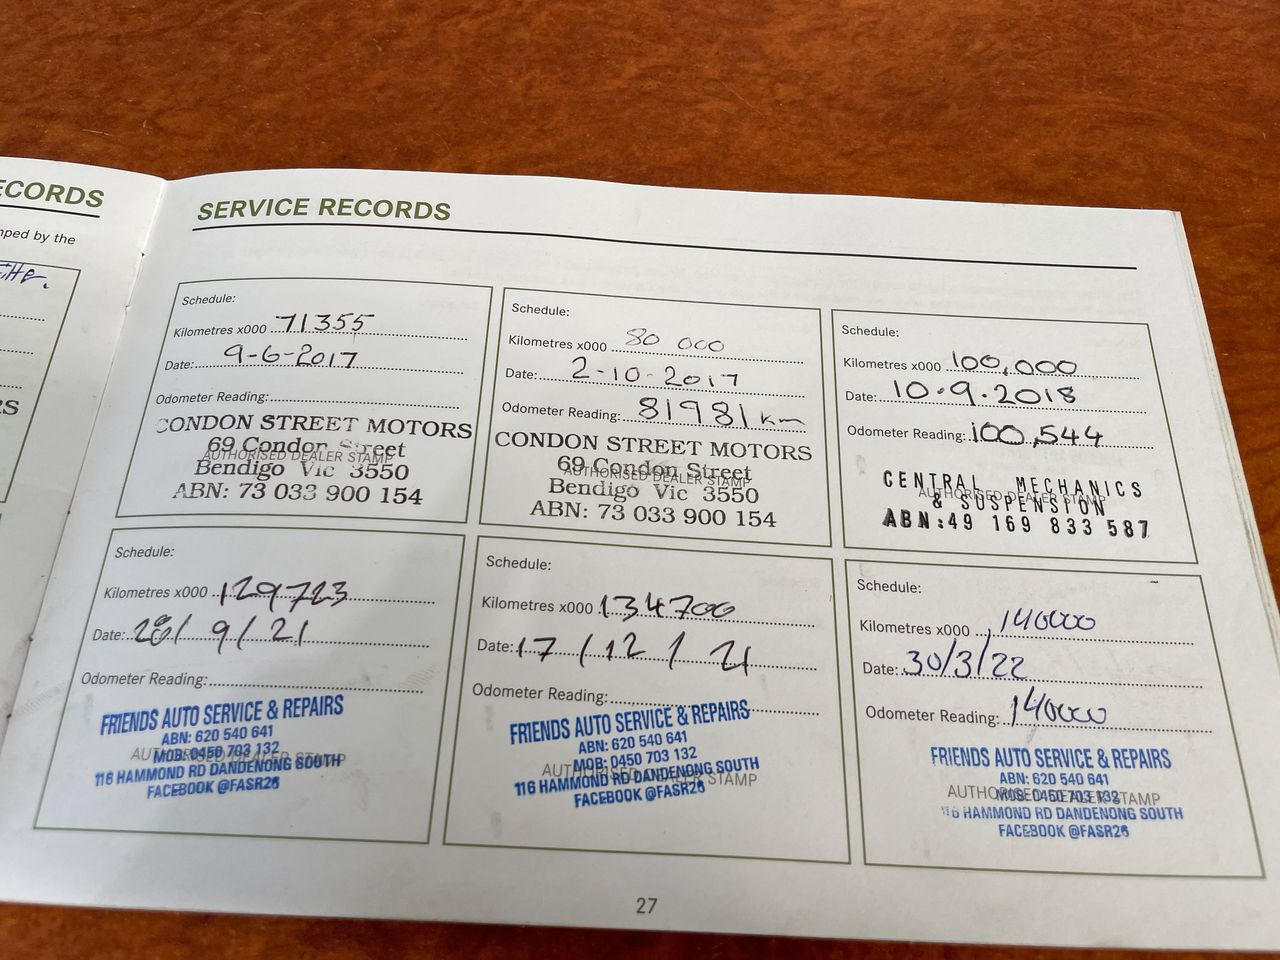 ECORDS
mped by the
RS
SERVICE RECORDS
Schedule:
Kilometres x000 71355
Date: 9-6-2017
Odometer Reading:
CONDON STREET MOTORS
69 Condon Street
AUTHORISED DEALER STAMP
Bendigo Vic 3550
ABN: 73 033 900 154
Schedule:
Kilometres x000 80 000
Date: 2-10-2017
Odometer Reading: 81981 km
CONDON STREET MOTORS
69 Condon Street
AUTHORISED DEALER STAMP
Bendigo Vic 3550
ABN: 73 033 900 154
Schedule:
Kilometres x000 100,000
Date: 10.9.2018
Odometer Reading: 100,544
CENTRAL MECHANICS
AUTHORISED DEALER STAMP
& SUSPENSION
ABN:49 169 833 587
Schedule:
Kilometres x000 129723
Date: 28/9/21
Odometer Reading:
FRIENDS AUTO SERVICE & REPAIRS
ABN: 620 540 641
MOB: 0450 703 132
AUTHORISED DEALER STAMP
116 HAMMOND RD DANDENONG SOUTH
FACEBOOK @FASR26
Schedule:
Kilometres x000 134700
Date: 17/12/21
Odometer Reading:
FRIENDS AUTO SERVICE & REPAIRS
ABN: 620 540 641
MOB: 0450 703 132
AUTHORISED DEALER STAMP
116 HAMMOND RD DANDENONG SOUTH
FACEBOOK @FASR26
Schedule:
Kilometres x000 140000
Date: 30/3/22
Odometer Reading: 140000
FRIENDS AUTO SERVICE & REPAIRS
ABN: 620 540 641
AUTHORISED DEALER STAMP
MOB: 0450 703 132
116 HAMMOND RD DANDENONG SOUTH
FACEBOOK @FASR26
27